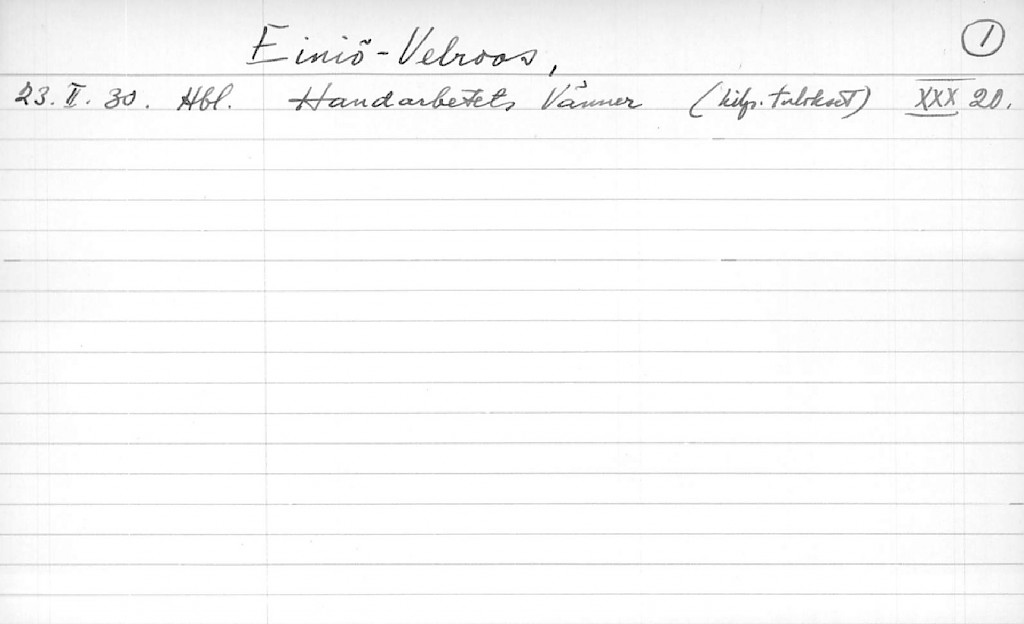 Einiö-Velroos, ①
23. II. 30. Hbl. Handarbetets Vänner (kilp. tulokset) XXX 20.